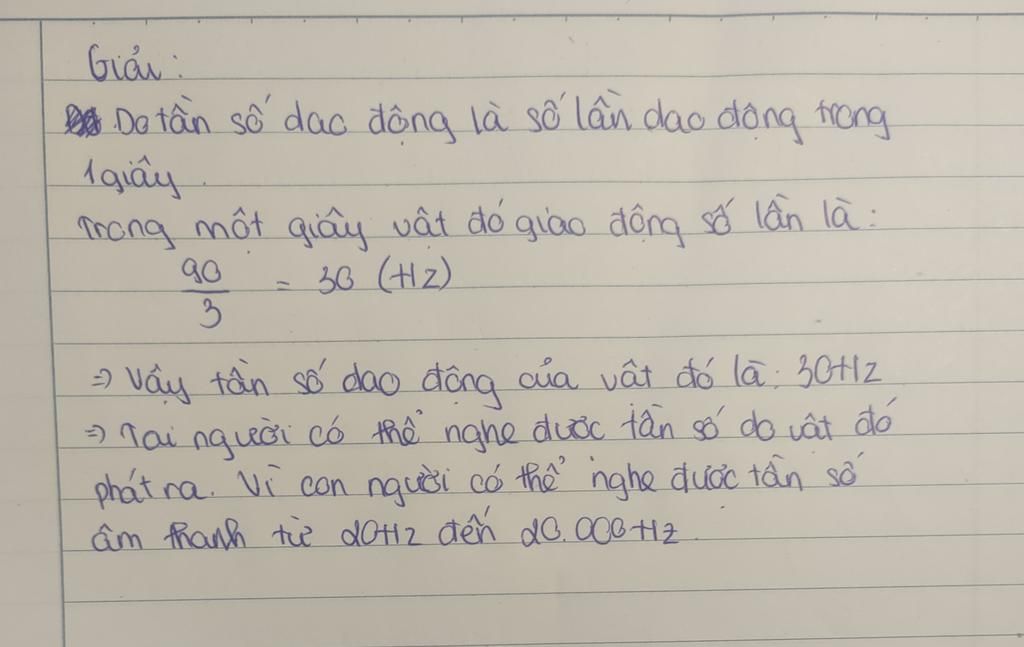 Giải:
Do tần số dao động là số lần dao động trong
1 giây.
Trong một giây vật đó giao động số lần là:
90/3 = 30 (Hz)
=> Vậy tần số dao động của vật đó là: 30Hz
=> Tai người có thể nghe được tần số do vật đó
phát ra. Vì con người có thể nghe được tần số
âm thanh từ 20Hz đến 20.000Hz.